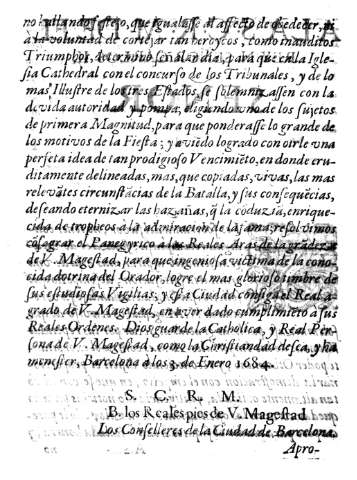 no hallando festejo, que igualasse al affecto de obedecer, ni
à la voluntad de cortejar tan heroycos, como inauditos
Triumphos, determinò señalar dia, para que en la Igle-
sia Cathedral con el concurso de los Tribunales, y de lo
mas Illustre de los tres Estados, se solemnizassen con la
devida autoridad y pompa, eligiendo uno de los sujetos
de primera Magnitud, para que ponderasse lo grande de
los motivos de la Fiesta; y aviẽdo logrado con oirle una
perfeta idea de tan prodigioso Vencimiẽto, en donde eru-
ditamente delineadas, mas, que copiadas, vivas, las mas
relevãtes circunstãcias de la Batalla, y sus consequẽcias,
deseando eternizar las hazañas, q̃ la coduzía, enrique-
cida de tropheos à la admiracion de la fama; resolvimos
cõsagrar el Panegyrico à las Reales Aras de la grãdeza
de V. Magestad, para que ingeniosa victima de la cono-
cida dotrina del Orador, logre el mas glorioso timbre de
sus estudiosas Vigilias, y esta Ciudad consiga el Real a-
grado de V. Magestad, en aver dado cumplimiẽto à sus
Reales Ordenes. Dios guarde la Catholica, y Real Per-
sona de V. Magestad, como la Christiandad desea, y ha
menester, Barcelona à los 3. de Enero 1684.
S. C. R. M.
B. los Reales pies de V. Magestad
Los Conselleres de la Ciudad de Barcelona.
Apro-